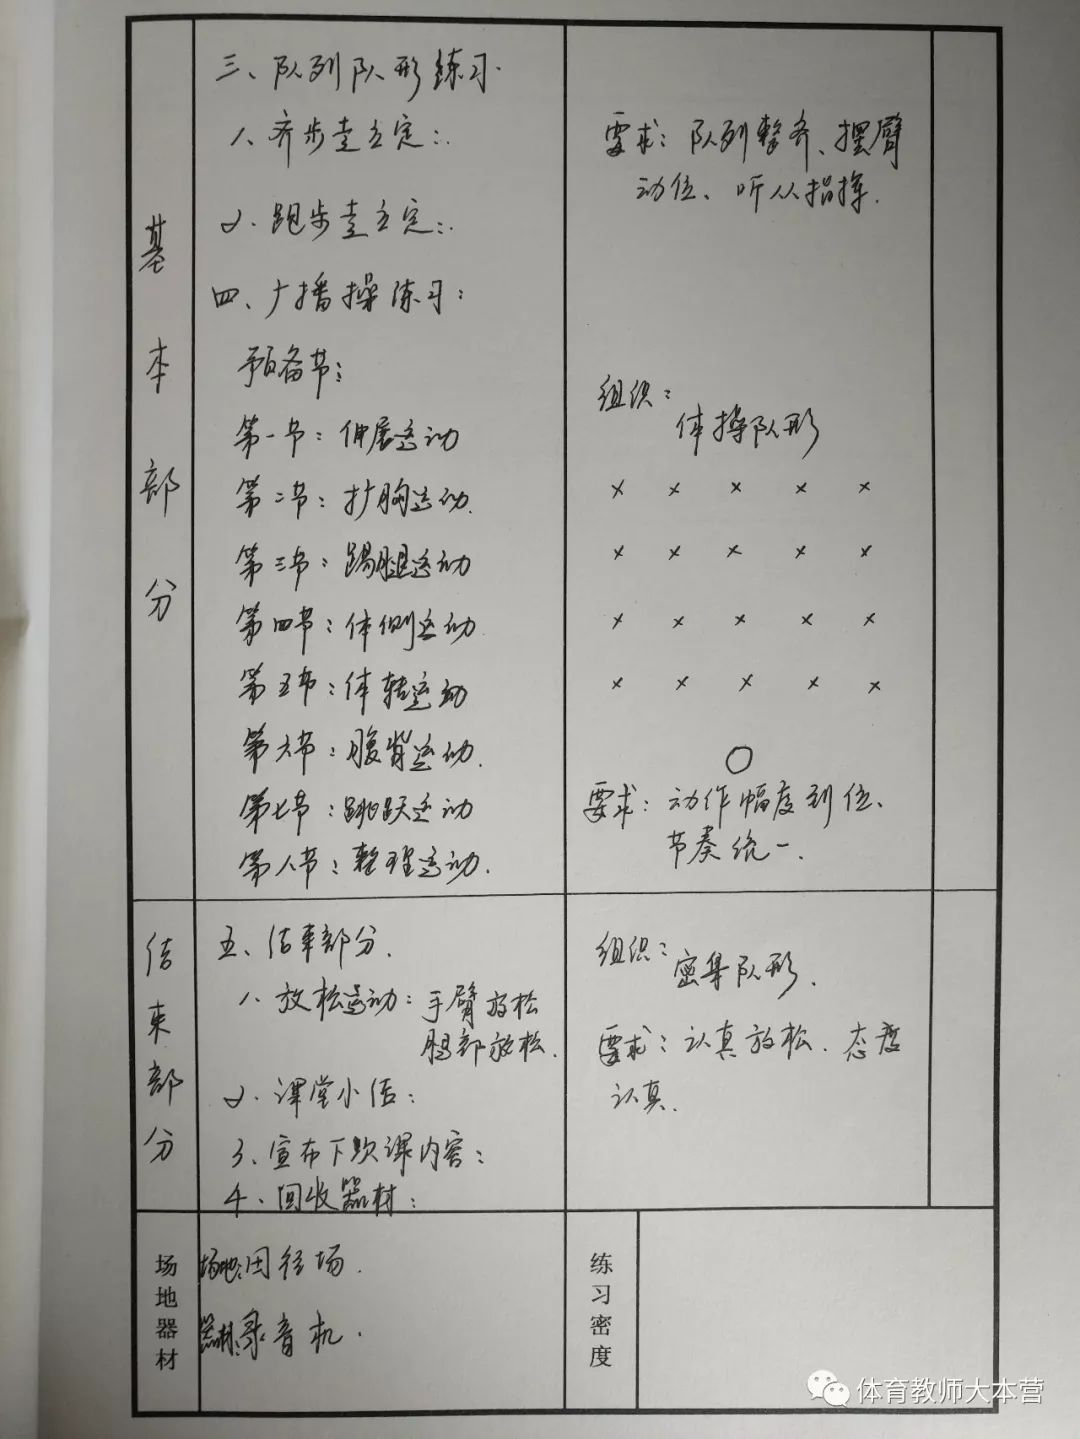 基本部分
三、队列队形练习.
1、齐步走立定:.
2、跑步走立定:.
四、广播操练习:
预备节:
第一节:伸展运动
第二节:扩胸运动.
第三节:踢腿运动
第四节:体侧运动.
第五节:体转运动
第六节:腹背运动.
第七节:跳跃运动
第八节:整理运动.
要求:队列整齐、摆臂
动位、听从指挥.
组织:
体操队形
× × × × ×
× × × × ×
× × × × ×
× × × × ×
○
要求:动作幅度到位、
节奏统一.
结束部分
五、结束部分.
1、放松运动:手臂放松
腿部放松.
2、课堂小结:
3、宣布下次课内容:
4、回收器材:
组织:
密集队形.
要求:认真放松、态度
认真.
场地器材
场地:田径场.
器材:录音机.
练习密度
体育教师大本营